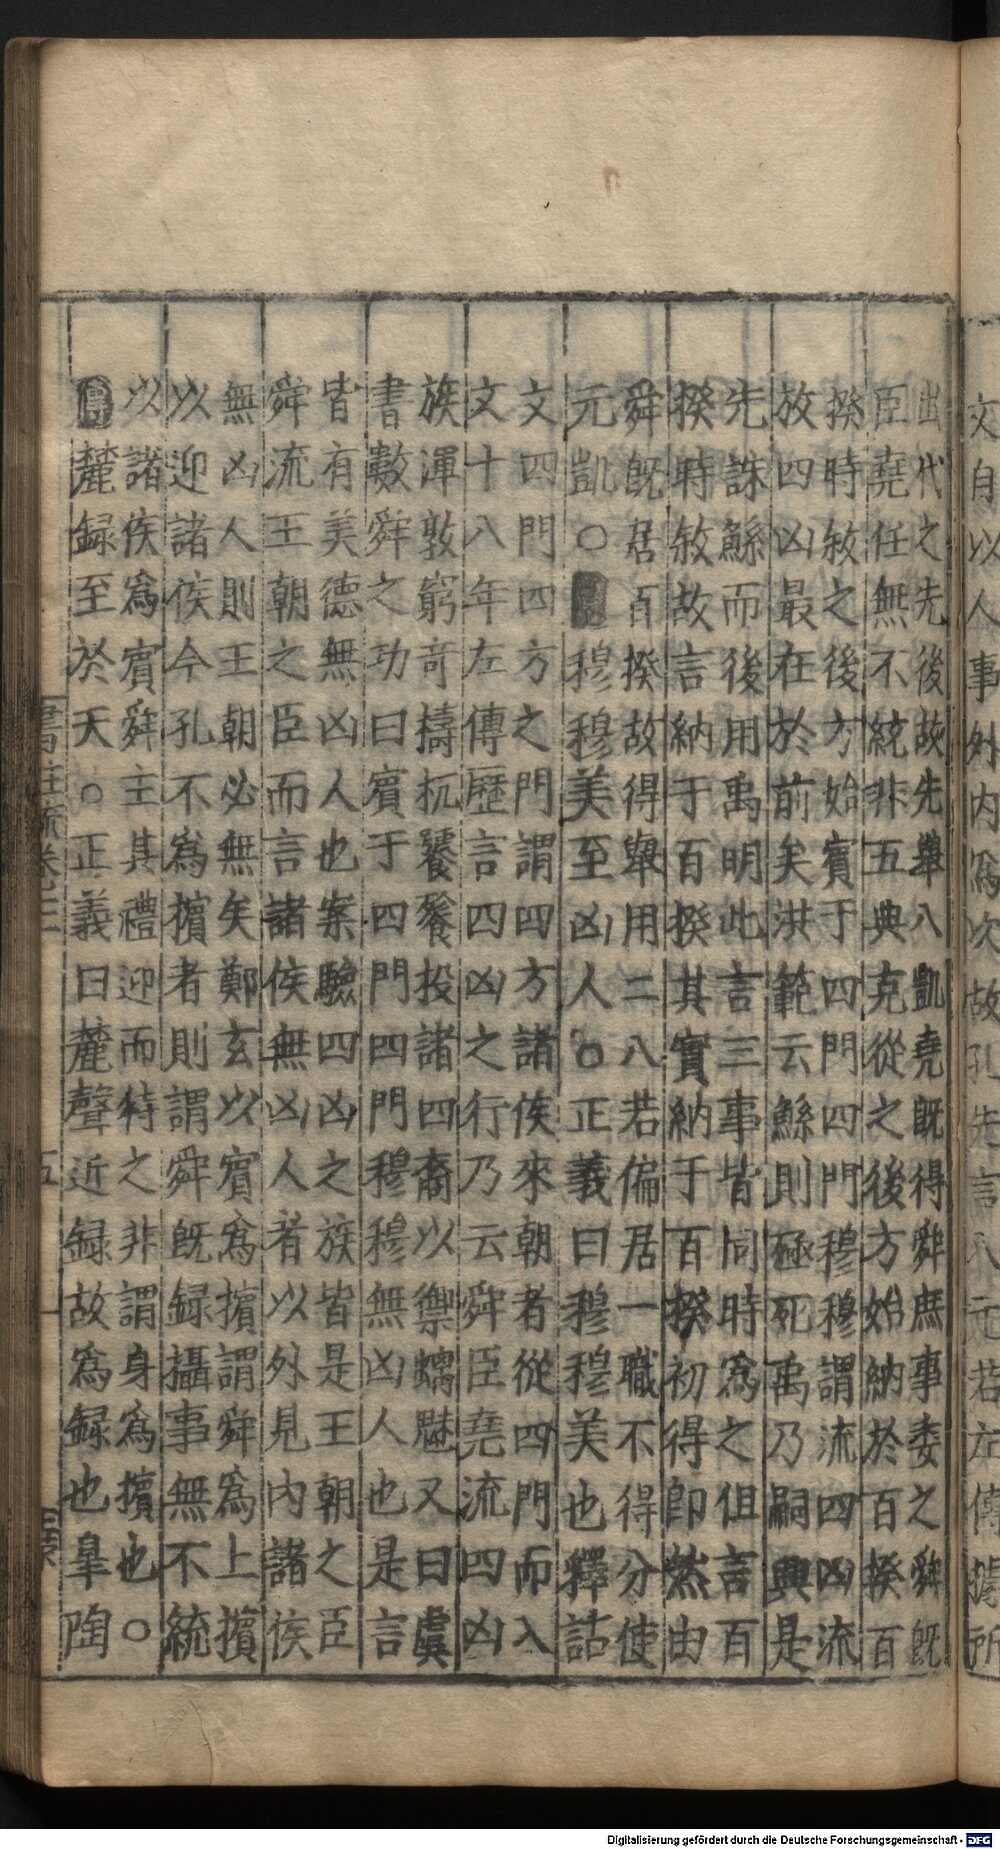 文自以人事外内爲次故孔先言八元若左傳據所
出代之先後故先舉八凱堯既得舜庶事委之舜既
臣堯任無不統非五典克從之後方始納於百揆百
揆時敘之後方始賓于四門四門穆穆謂流四凶流
放四凶最在於前矣洪範云鯀則殛死禹乃嗣興是
先誅鯀而後用禹明此言三事皆同時爲之但言百
揆時敘故言納于百揆其實納于百揆初得即然由
舜既居百揆故得舉用二八若偏居一職不得分使
元凱○穆穆美至凶人○正義曰穆穆美也釋詁
文四門四方之門謂四方諸侯來朝者從四門而入
文十八年左傳歷言四凶之行乃云舜臣堯流四凶
族渾敦窮竒檮杌饕餮投諸四裔以禦螭魅又曰虞
書數舜之功曰賓于四門四門穆穆無凶人也是言
皆有美德無凶人也案驗四凶之族皆是王朝之臣
舜流王朝之臣而言諸侯無凶人者以外見内諸侯
無凶人則王朝必無矣鄭玄以賓爲擯謂舜爲上擯
以迎諸侯今孔不爲擯者則謂舜既録攝事無不統
以諸侯爲賓舜主其禮迎而待之非謂身爲擯也○
傳麓録至於天○正義曰麓聲近録故爲録也皐陶
書註疏卷三 五
Digitalisierung gefördert durch die Deutsche Forschungsgemeinschaft - DFG